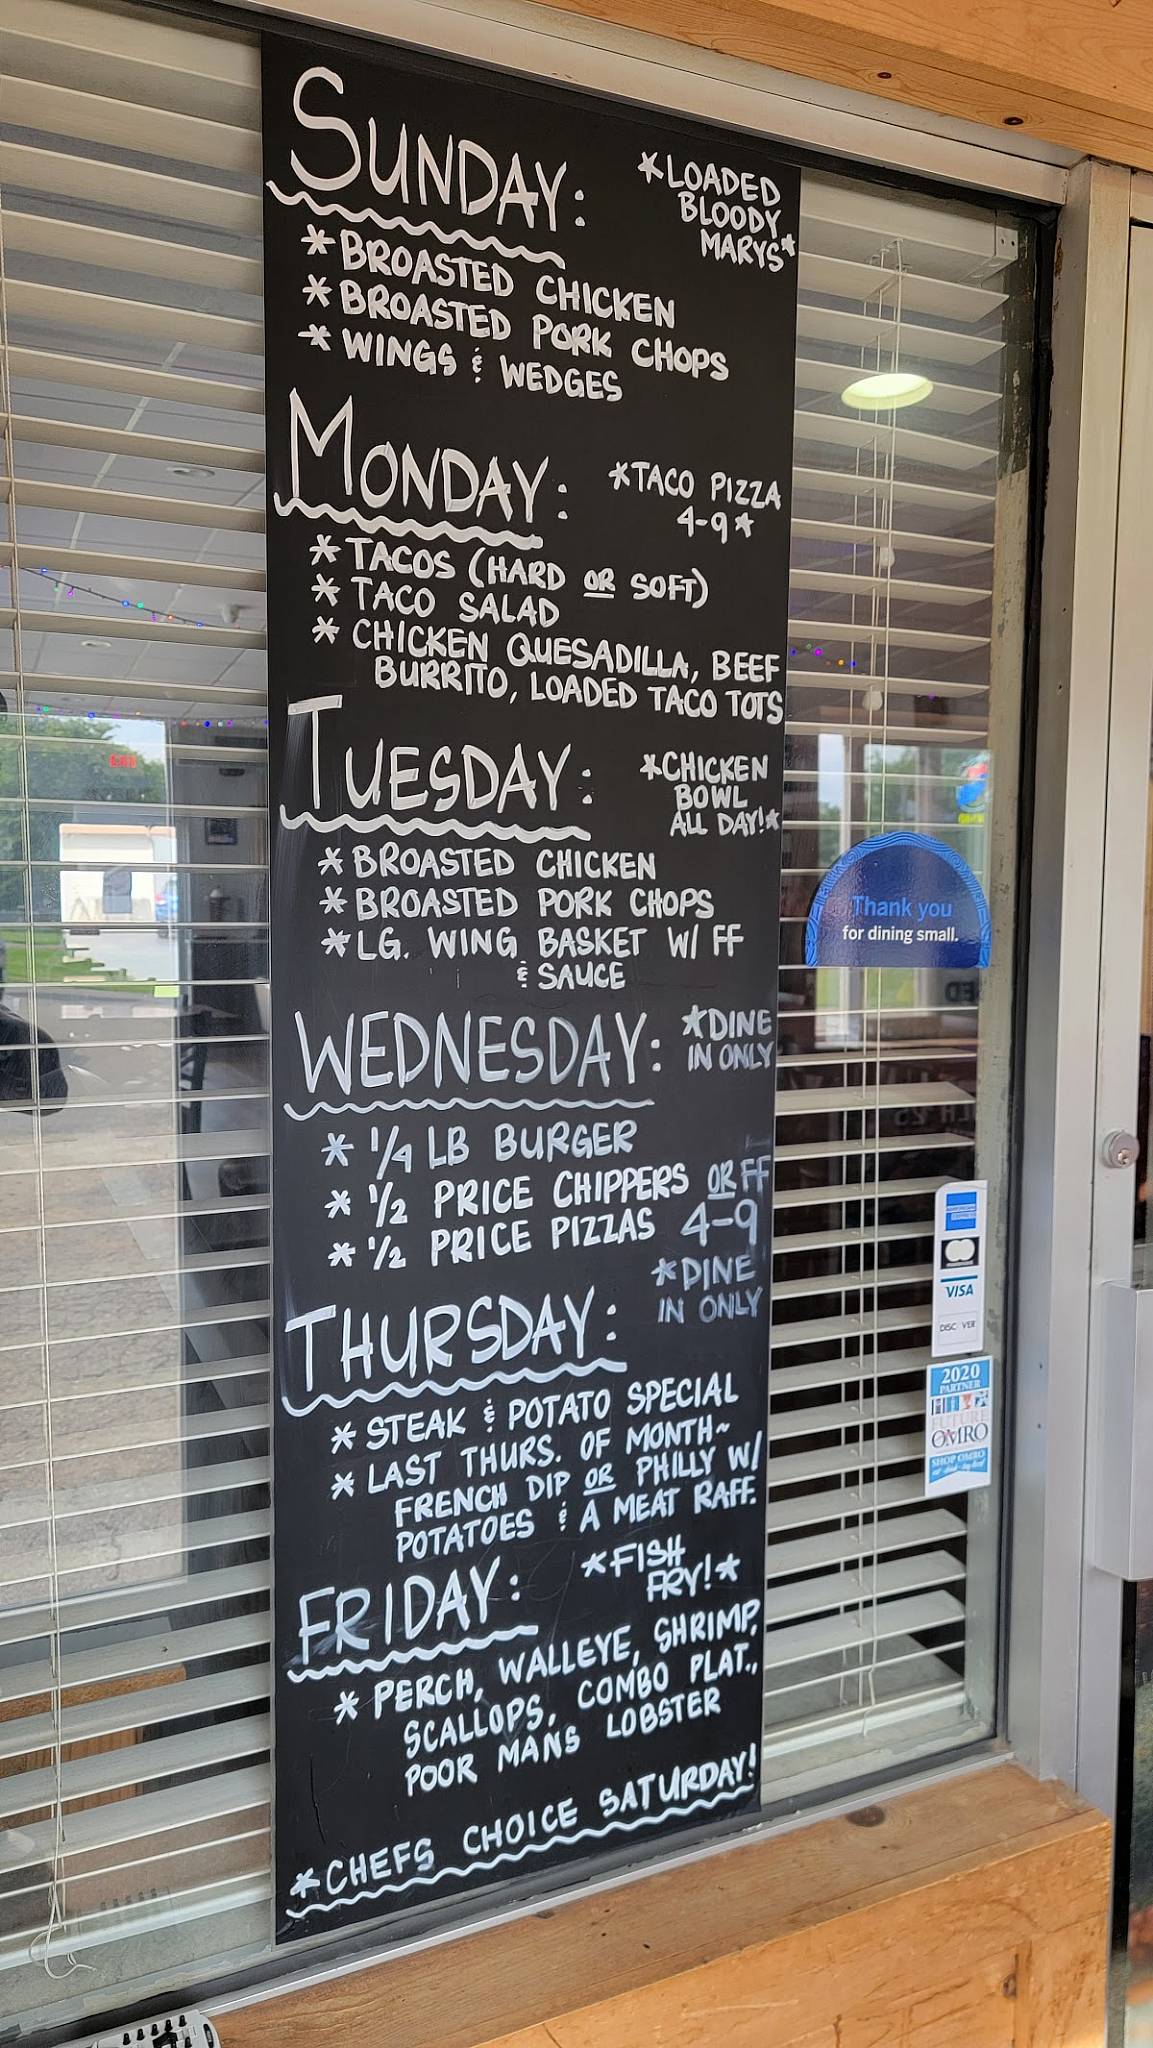 SUNDAY:
*LOADED
BLOODY
MARYS*
* BROASTED CHICKEN
* BROASTED PORK CHOPS
* WINGS & WEDGES
MONDAY:
*TACO PIZZA
4-9*
* TACOS (HARD OR SOFT)
* TACO SALAD
* CHICKEN QUESADILLA, BEEF
BURRITO, LOADED TACO TOTS
TUESDAY:
*CHICKEN
BOWL
ALL DAY!*
* BROASTED CHICKEN
* BROASTED PORK CHOPS
* LG. WING BASKET W/ FF
& SAUCE
WEDNESDAY:
*DINE
IN ONLY
* 1/4 LB BURGER
* 1/2 PRICE CHIPPERS OR FF
* 1/2 PRICE PIZZAS 4-9
THURSDAY:
*DINE
IN ONLY
* STEAK & POTATO SPECIAL
* LAST THURS. OF MONTH~
FRENCH DIP OR PHILLY W/
POTATOES & A MEAT RAFF.
FRIDAY:
*FISH
FRY!*
* PERCH, WALLEYE, SHRIMP,
SCALLOPS, COMBO PLAT.,
POOR MANS LOBSTER
*CHEFS CHOICE SATURDAY!
Thank you
for dining small.
AMERICAN
EXPRESS
VISA
DISC VER
2020
PARTNER
FUTURE
OMRO
SHOP OMRO